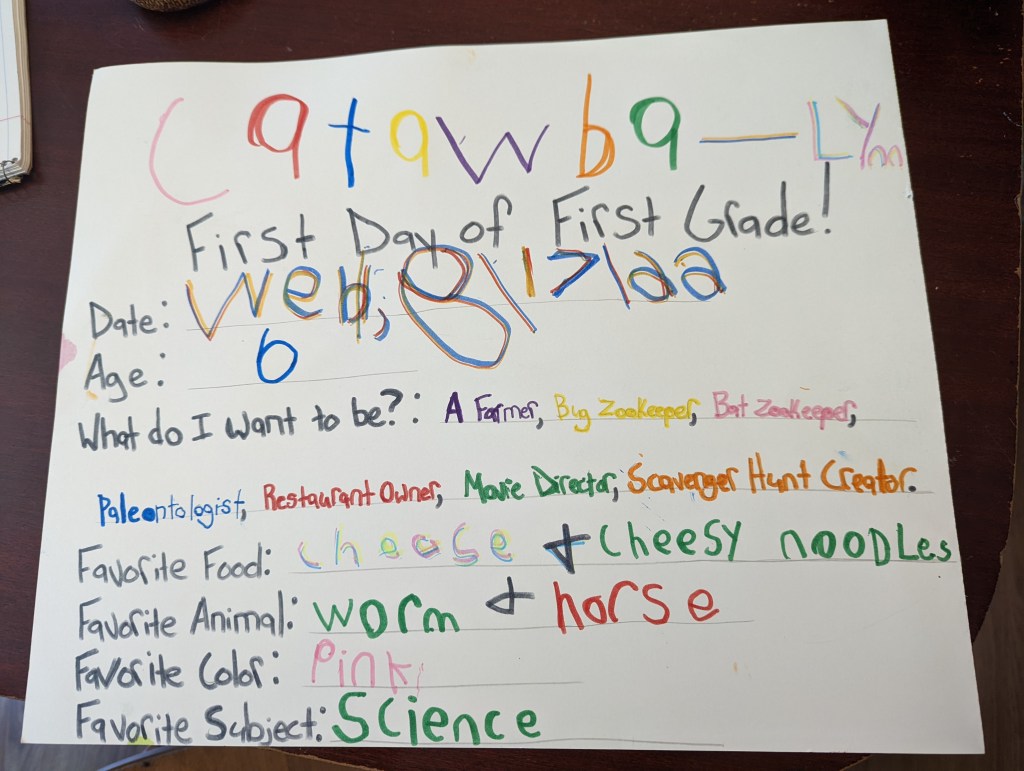 Catawba — LYnn
First Day of First Grade!
Date: Wed, 8\17\22
Age: 6
What do I want to be?: A Farmer, Bug Zookeeper, Bat Zookeeper,
Paleontologist, Restaurant Owner, Movie Director, Scavenger Hunt Creator.
Favorite Food: cheese + cheesy nOODLes
Favorite Animal: worm + horse
Favorite Color: Pink
Favorite Subject: Science